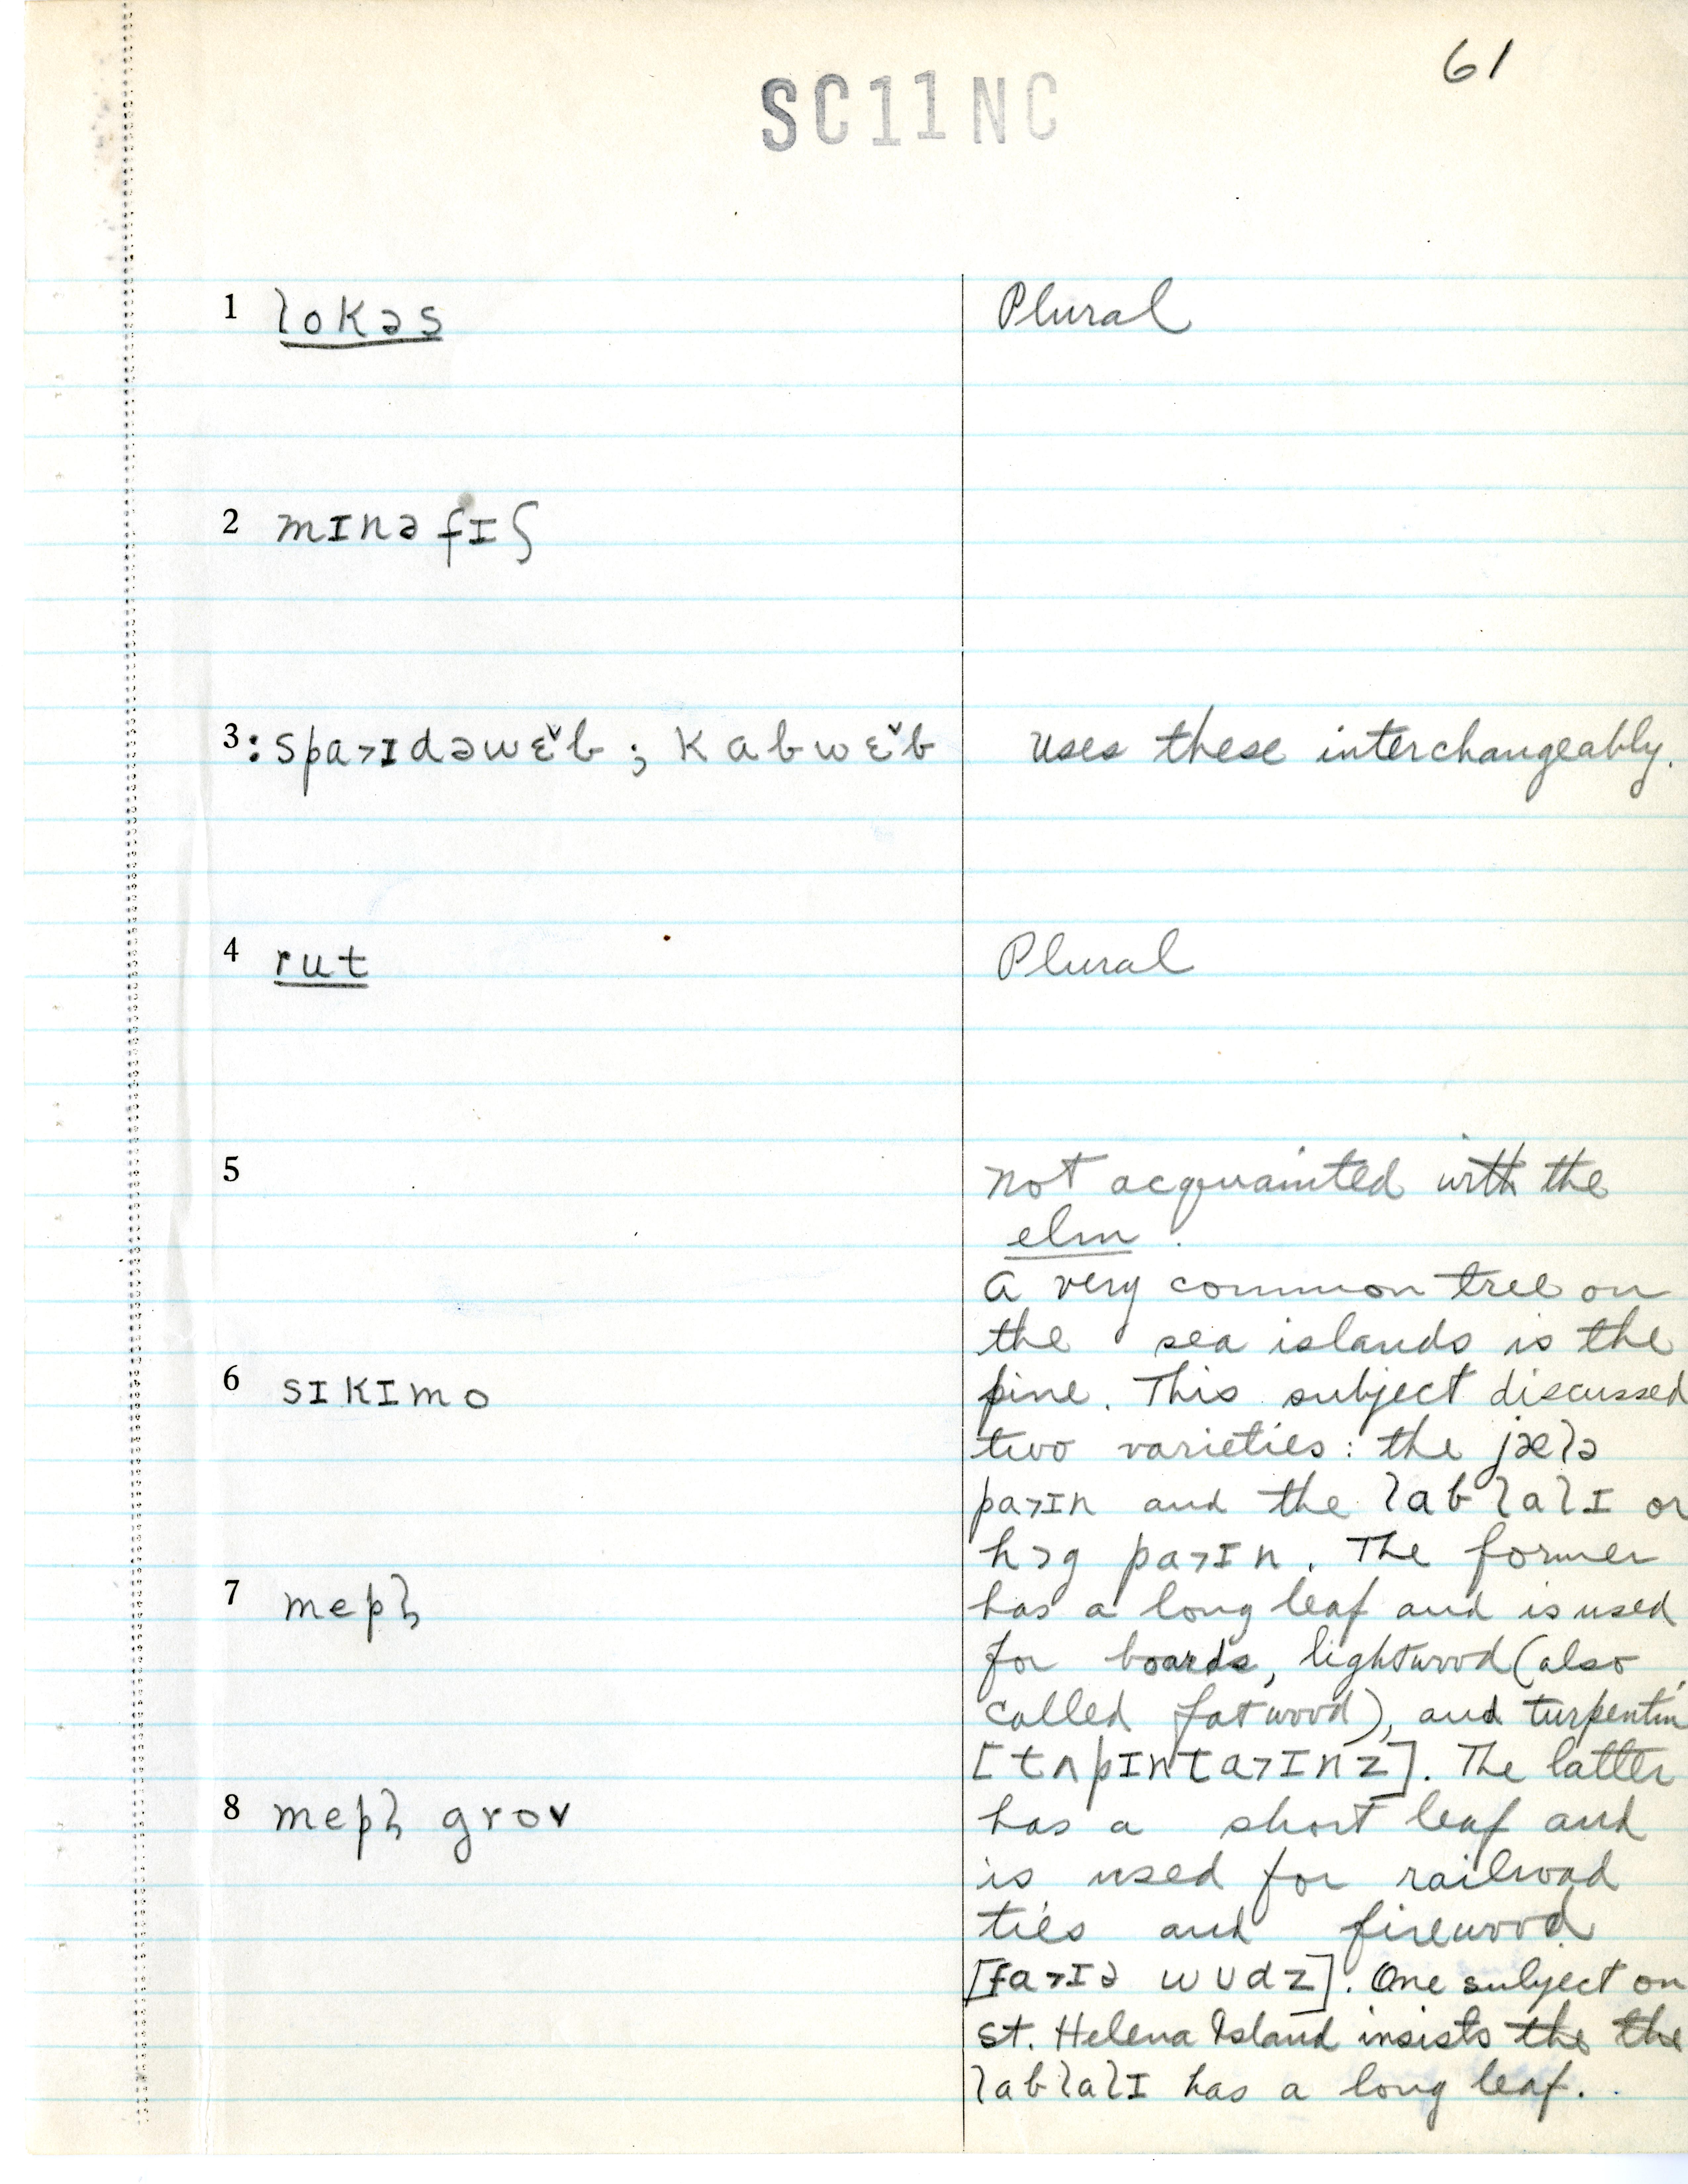 61
SC11NC
1 lokəs Plural
2 mɪnəfɪʃ
3 : spa˃ɪdəwɛ̌b ; kabwɛ̌b uses these interchangeably.
4 rut Plural
5 not acquainted with the
elm.
a very common tree on
the sea islands is the
6 sɪkɪmo pine. This subject discussed
two varieties: the jælə
pa˃ɪn and the lablalɪ or
hɔg pa˃ɪn. The former
7 mepl̩ has a long leaf and is used
for boards, lightwood (also
called fatwood), and turpentin
[tʌpɪnta˃ɪnz]. The latter
8 mepl̩ grov has a short leaf and
is used for railroad
ties and firewood
[fa˃ɪə wʊdz]. One subject on
St. Helena Island insists the the
lablalɪ has a long leaf.